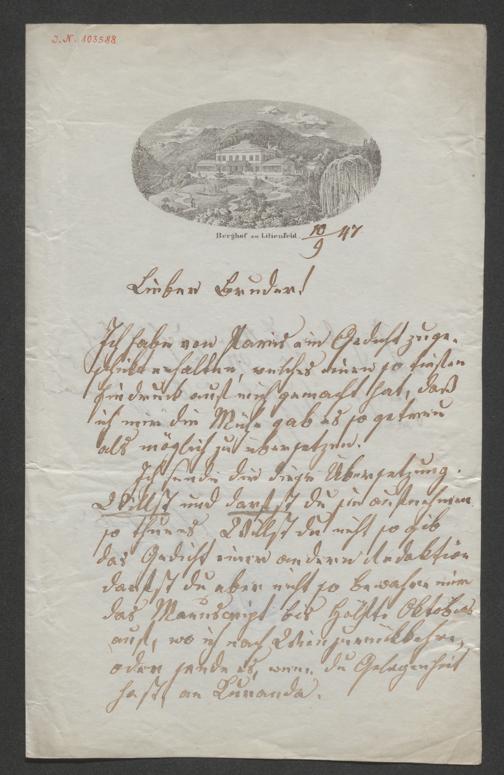 J.N. 103588
Berghof zu Lilienfeld
10/9 47
Lieber Bruder!
Ich habe von Paris ein Gedicht zuge-
schickt erhalten, welches einen so tiefen
Eindruck auf mich gemacht hat, daß
ich mir die Mühe gab es so getreu
als möglich zu übersetzen.
Ich sende dir diese Übersetzung.
Willst und darfst du sie aufnehmen
so thue es. Willst du nicht so gib
das Gedicht einer andern Redaktion
darfst du aber nicht so bewahre mir
das Manuscript bis Hälfte Oktobers
auf, wo ich nach Wien zurückkehre,
oder sende es, wenn du Gelegenheit
hast, an Kuranda.